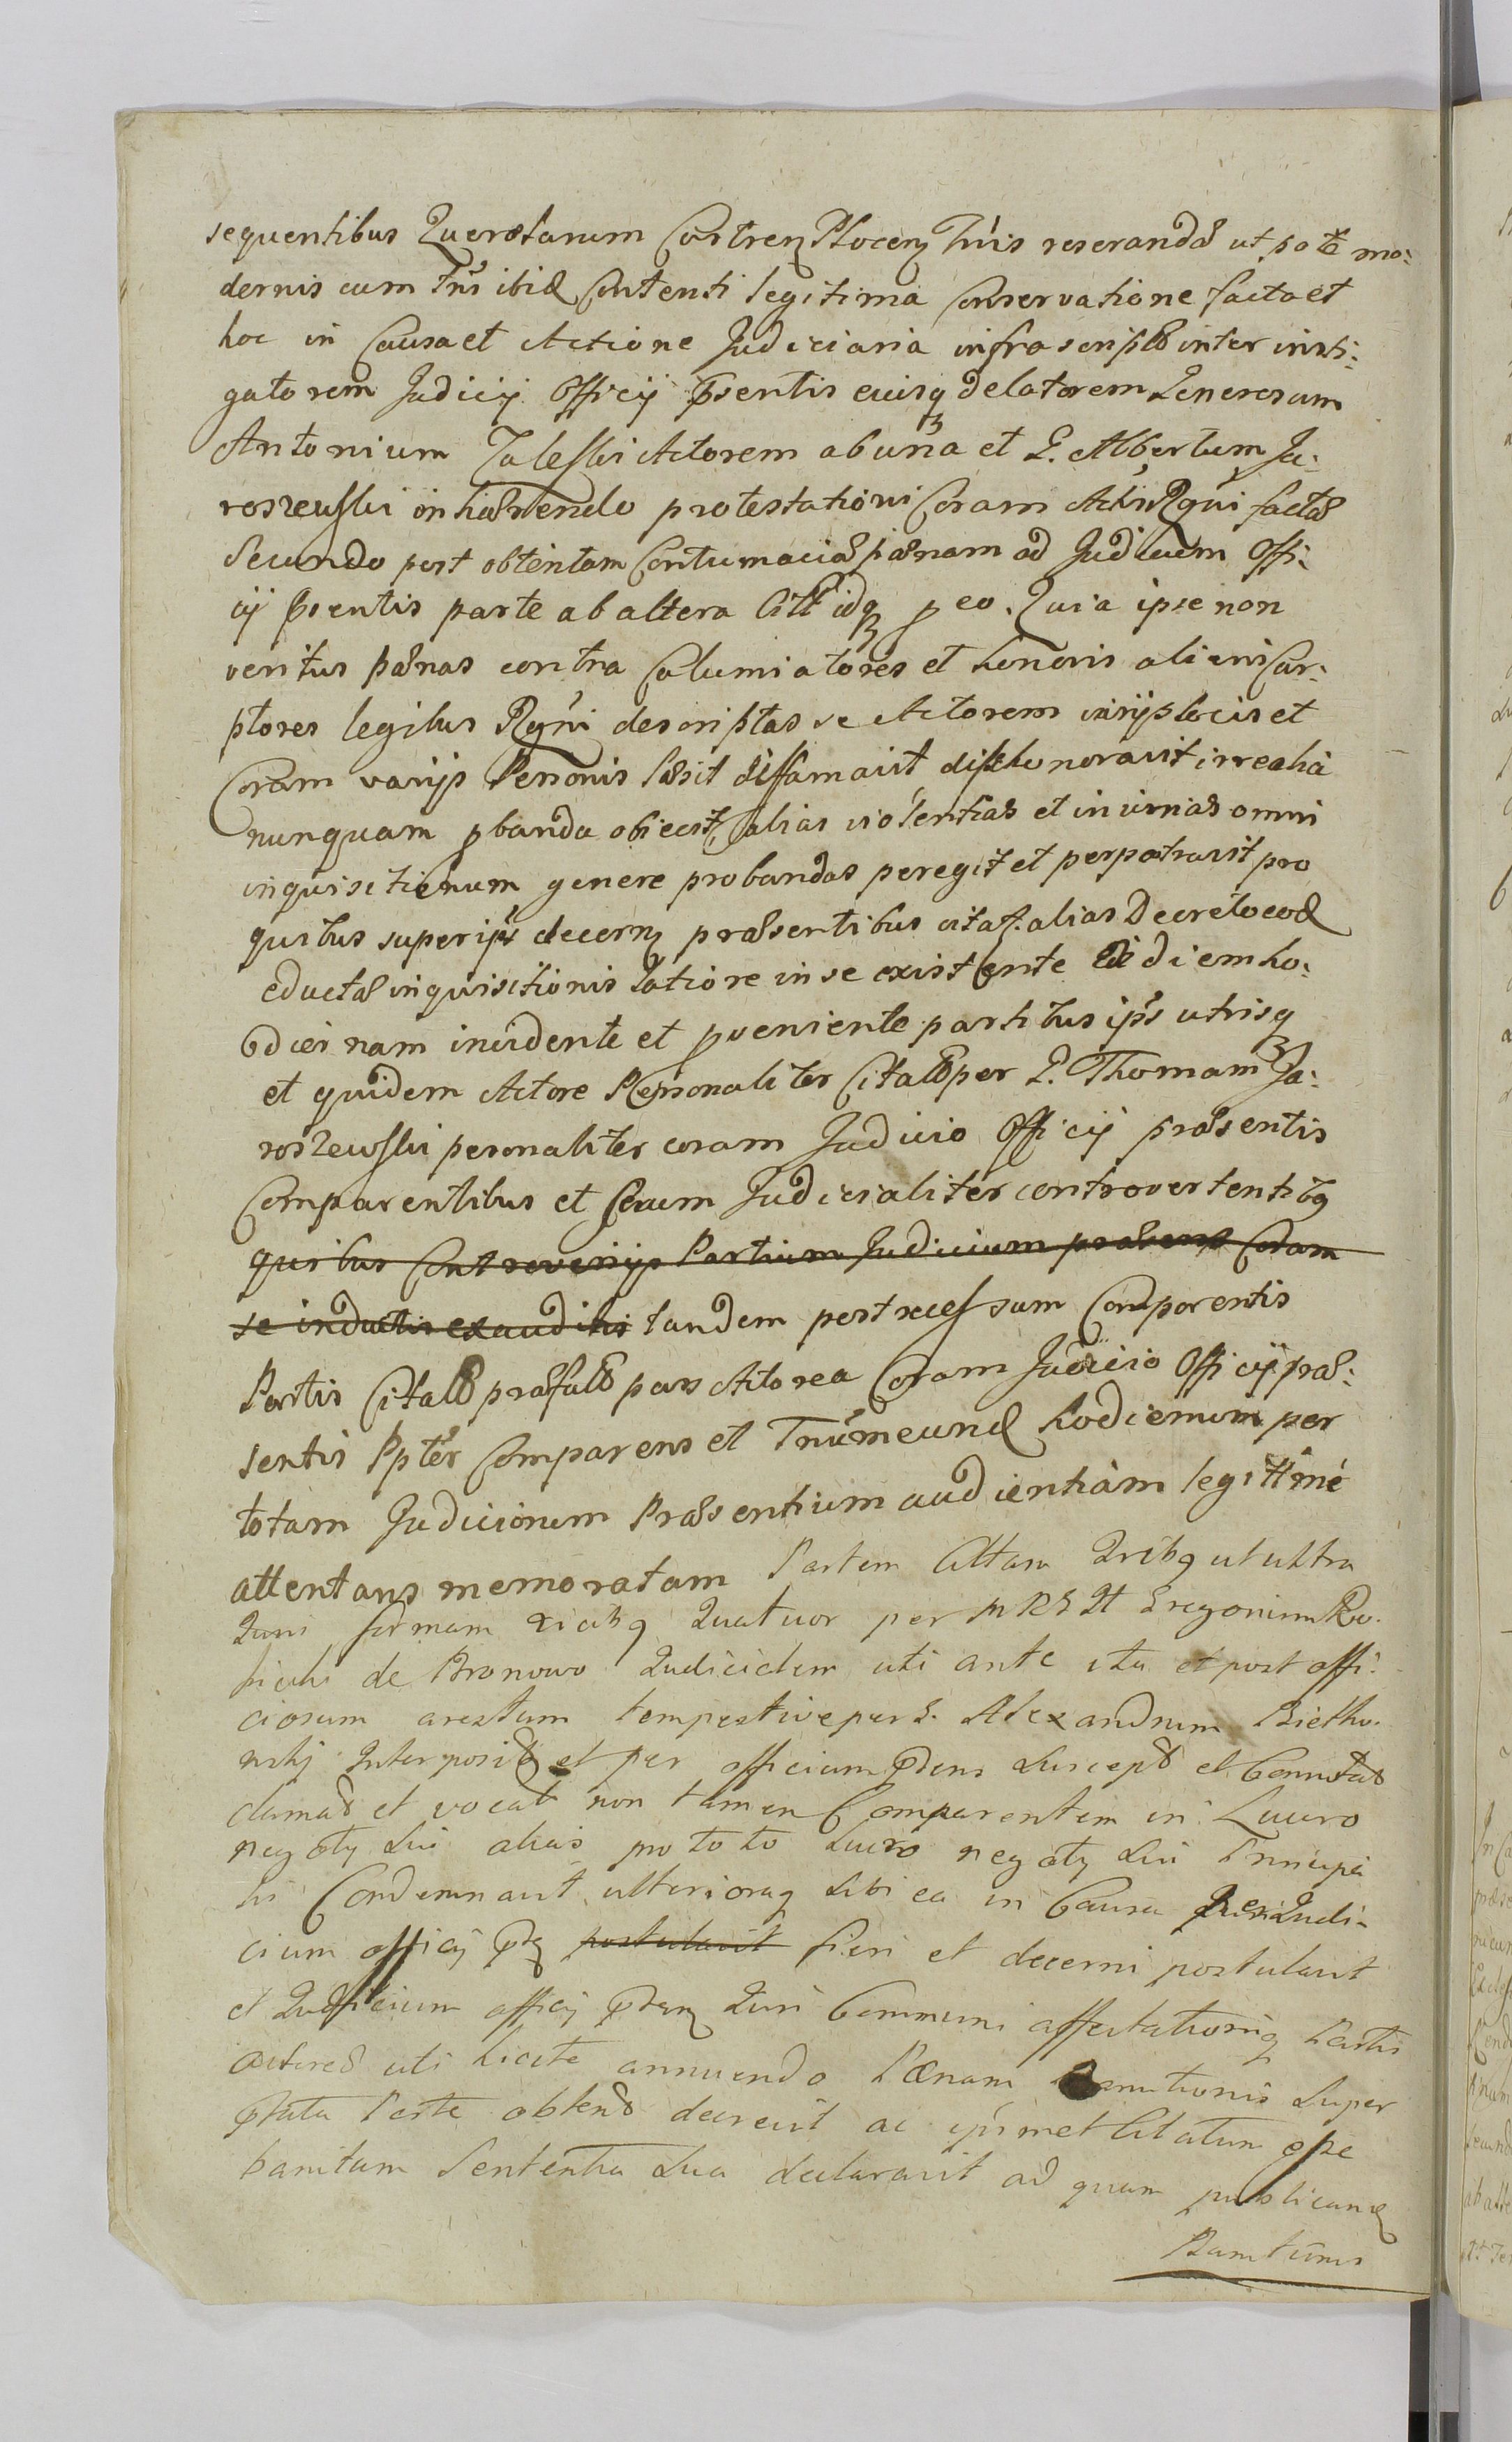 sequentibus Querelarum Castren Plocen Tris reseranda ut pote mo:
dernis cum Tris ibid Contenti legitima Conservatione facta et
hoc in Causa et Actione Judiciaria infrascripta inter insti:
gatorem Judicij Officij psentis eiusq delatorem Generosum
Antonium Zaleski Actorem ab una et G. Albertum Ja:
roszewski inhærendo protestationi Coram Actis Rgni factæ
Secundo post obtentam Contumaciæ pænam ad Judicium Offi:
cij psentis parte ab altera Citt idq p eo. Quia ipse non
veritus pænas contra Calumiatores et honoris alieni Car:
ptores legibus Rgni descriptas se Actorem varijs locis et
Coram varijs Personis læsit diffamavit dishonoravit irrealia
nunquam pbanda obiecit, alias violentias et iniurias omni
inquisitionum genere probandas peregit et perpetravit pro
quibus super ips decern præsentibus citat. alias Decreto eod
eductæ inquisitionis latiore in se existente Ad diem ho:
dier nam incidente et pveniente partibus ips utrisq
et quidem Actore Personaliter Citato per G. Thomam Ja:
roszewski personaliter coram Judicio Officij præsentis
Comparentibus et secum Judicialiter controvertentibq
quibus Controversijs Partium Judicium præsens Coram
se inductis exauditis tandem post recessum Comparentis
Partis Citatæ præfatæ pars Actorea Coram Judicio Officij præ:
sentis Ppter Comparens et Trum eund hodiernum per
totam Judiciorum Præsentium audientiam legittime
attentans memoratam Partem Cittam Tribq ut ultra
Juris formam vicibq Quatuor per MRSDt Gregorium Ro.
sicki de Bronowo Judicialem uti ante ita et post offi:
ciosum arestum tempestive per G. Alexandrum Bietko.
wski Interposit et per officium pdens Suscept et Connotat
clamat et vocat non tamen Comparentem in Lucro
negotij sui alias pro toto lucro negotij sui Principa
li Condemnavit ulteriorq sibi ea in Causa per Judi-
cium officij pns postulavit fieri et decerni postulavit
et Judicium officij pdens Juri Communi affectationiq Partis
actoreæ uti licitæ annuendo Pænam Bannitionis super
pfata Parte obtend decrevit ac ipsmet Citatum esse
banitum Sententia sua declaravit ad quam publicand
Banitionis